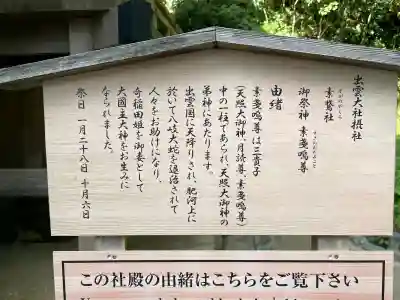 出雲大社摂社
素鵞社
そがのやしろ
御祭神 素戔嗚尊
すさのおのみこと
由緒
素戔嗚尊は三貴子
(天照大御神、月読尊、素戔嗚尊)
中の一柱であられ、天照大御神の
弟神にあたります。
出雲国に天降りされ、肥河上に
於いて八岐大蛇を退治されて
人々をお助けになり、
奇稲田姫を御妻として
大国主大神をお生みに
なられました。
祭日 一月二十八日 十月六日
この社殿の由緒はこちらをご覧下さい